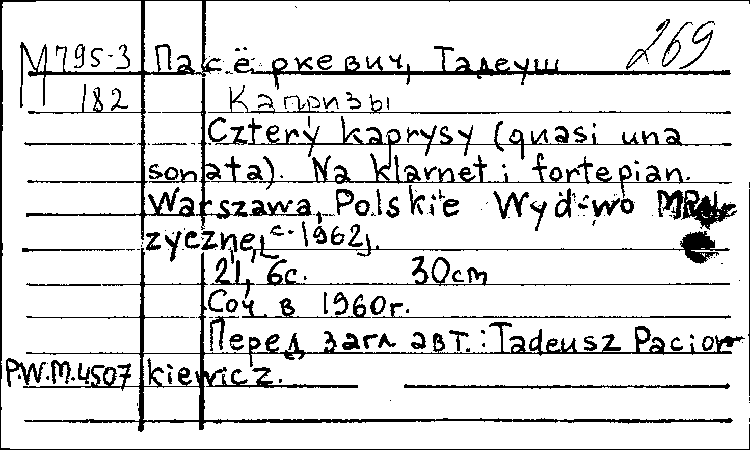 269
М 795-3 Пасёркевич, Тадеуш
182 Капризы
Cztery kaprysy (quasi una
sonata). Na klarnet i fortepian.
Warszawa, Polskie Wyd-wo
zyczne, [c. 1962].
21, 6с. 30cm
Соч. в 1960г.
Перед загл авт.: Tadeusz Pacior-
P.W.M.4507 kiewicz.